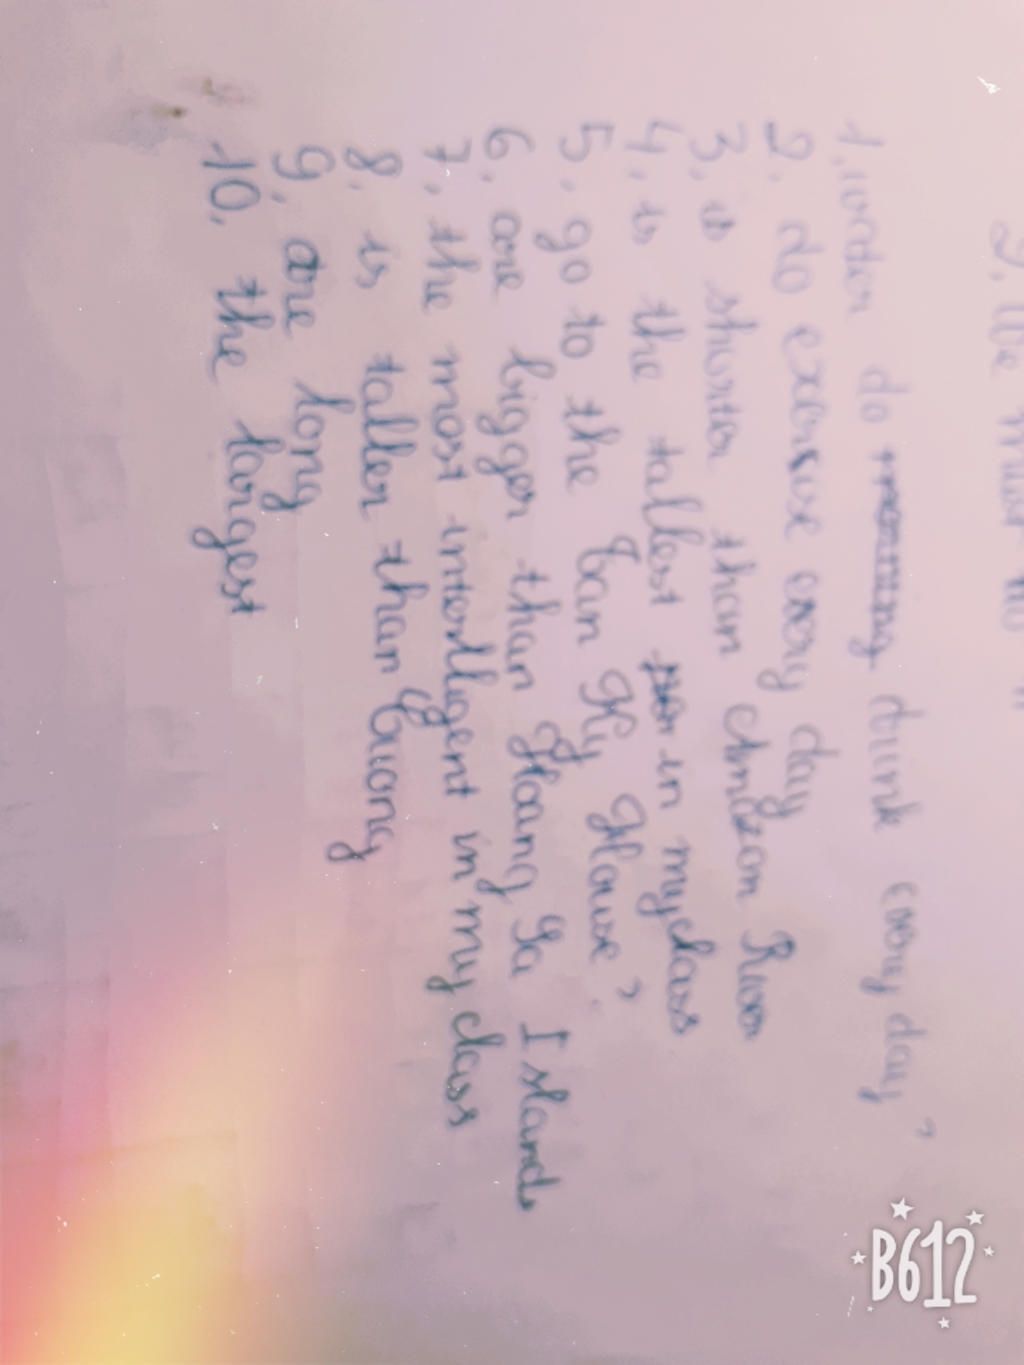 2. We must do
1. water do drink every day?
2. do exersise every day
3. is shorter than Amazon River
4. is the tallest in my class
5. go to the Tan Ky House?
6. are bigger than Hoang Sa Islands
7. the most intertlligent in my class
8. is taller than Cuong
9. are long
10. the largest
B612